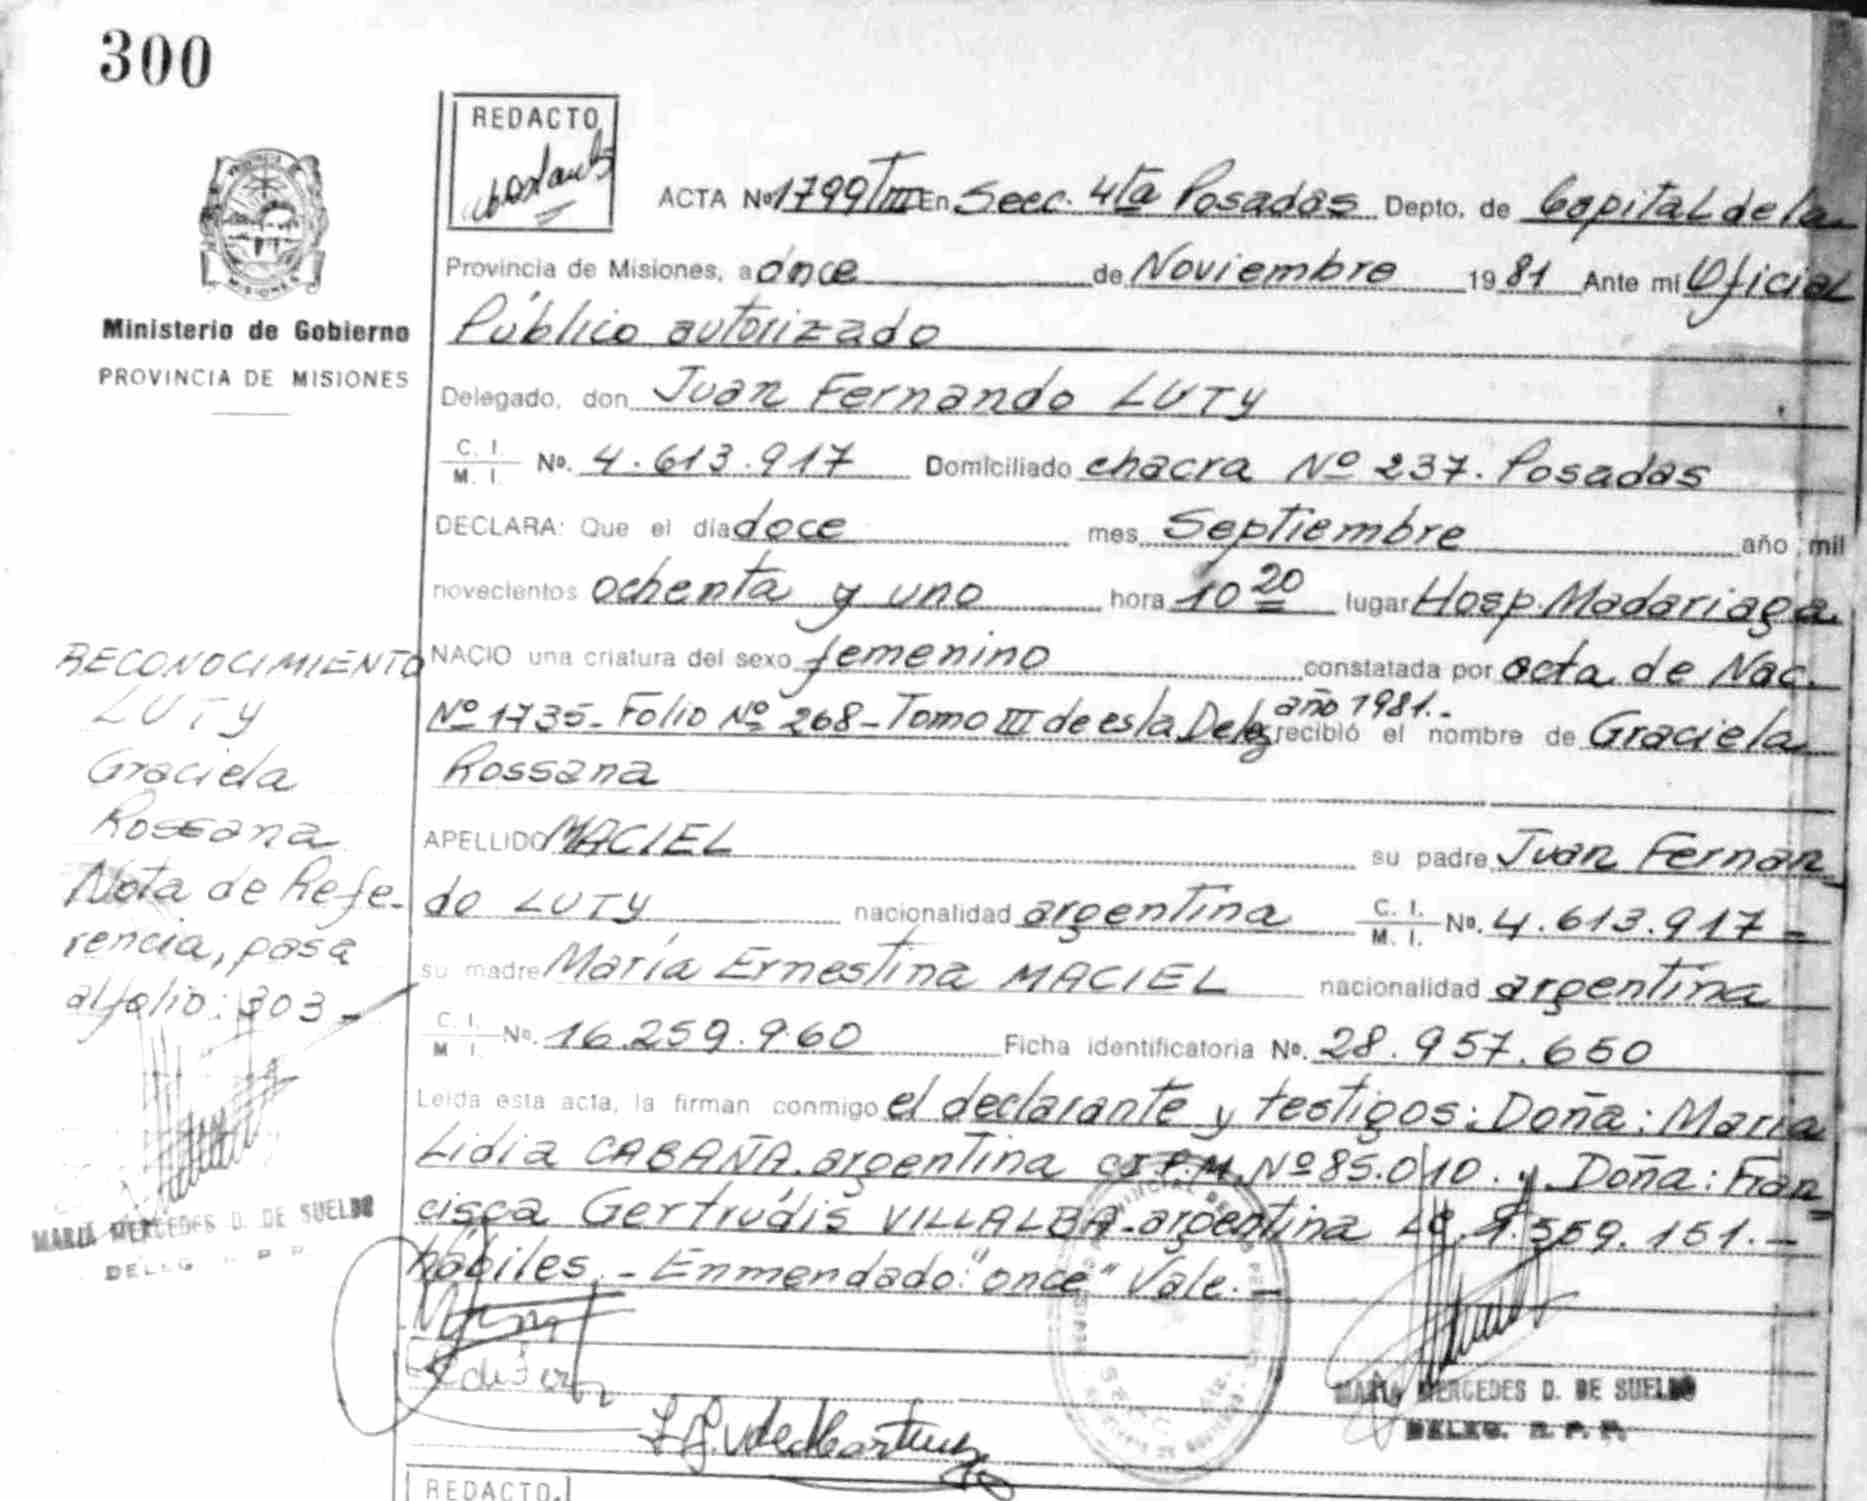 300
REDACTO
ACTA Nº 1799 T III En Secc. 4ta Posadas Depto. de Capital de la
Provincia de Misiones, a once de Noviembre 1981 Ante mi Oficial
Ministerio de Gobierno
PROVINCIA DE MISIONES
Público autorizado
Delegado, don Juan Fernando LUTY
C. I. M. I. Nº. 4.613.917 Domiciliado chacra Nº 237. Posadas
DECLARA: Que el día doce mes Septiembre año mil
novecientos ochenta y uno hora 10 20 lugar Hosp. Madariaga
NACIO una criatura del sexo femenino constatada por acta de Nac.
Nº 1735 - Folio Nº 268 - Tomo III de esta Deleg año 1981.- recibió el nombre de Graciela
Rossana
APELLIDO MACIEL su padre Juan Fernan
do LUTY nacionalidad argentina C. I. M. I. Nº. 4.613.917 -
su madre María Ernestina MACIEL nacionalidad argentina
C. I. M I. Nº. 16.259.960 Ficha identificatoria Nº. 28.957.650
Leída esta acta, la firman conmigo el declarante y testigos: Doña: María
Lidia CABAÑA. argentina C.I.P.M. Nº 85.010. y Doña: Fran
cisca Gertrúdis VILLALBA - argentina LC. 1.559.151.-
hábiles. - Enmendado: "once" Vale. -
RECONOCIMIENTO
LUTY
Graciela
Rossana
Nota de Refe-
rencia, pasa
al folio: 303 -
MARIA MERCEDES D. DE SUELDO
DELEG. R. P. P.
MARIA MERCEDES D. DE SUELDO
DELEG. R. P. P.
REDACTO.